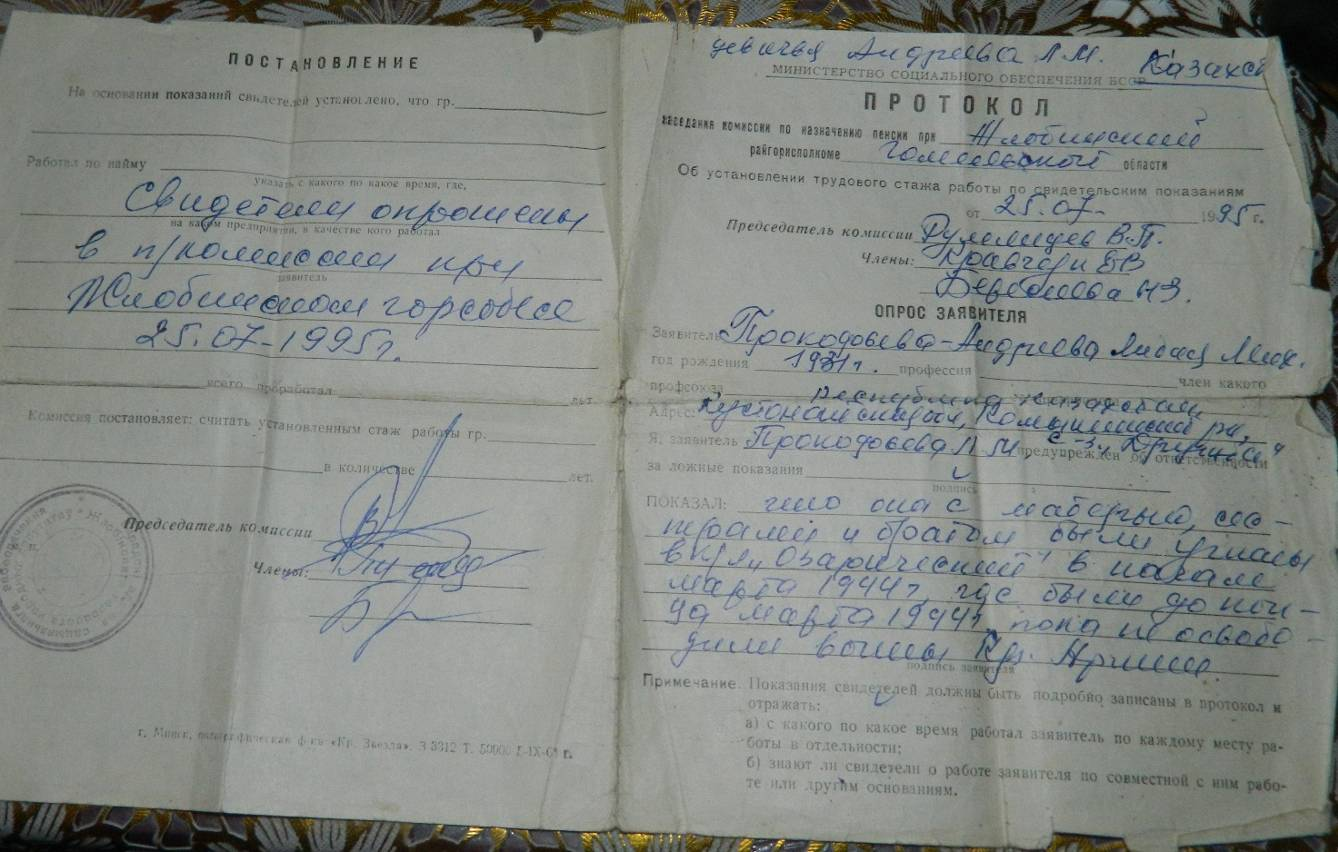 ПОСТАНОВЛЕНИЕ
На основании показаний свидетелей установлено, что гр.
Работал по найму
указать с какого по какое время, где,
Свидетели опрошены
на каком предприятии, в качестве кого работал
в при
заявитель
Жлобинском горсобесе
25.07-1995г.
всего проработал лет
Комиссия постановляет: считать установленным стаж работы гр.
в количестве лет.
Председатель комиссии
Члены:
г. Минск, ф-ка «Кр. Звезда». З 3312 Т. 50000
девичья Андреева Л.М. Казахс
МИНИСТЕРСТВО СОЦИАЛЬНОГО ОБЕСПЕЧЕНИЯ БССР
ПРОТОКОЛ
заседания комиссии по назначению пенсии при Жлобинский
райгорисполкоме Гомельской области
Об установлении трудового стажа работы по свидетельским показаниям
от 25.07- 1995 г.
Председатель комиссии В.П.
Члены:
НЗ.
ОПРОС ЗАЯВИТЕЛЯ
Заявитель -Андреева
год рождения профессия член какого
профсоюза Республика Казахстан
Адрес:
Я, заявитель Л.М. предупрежден об ответственности
за ложные показания
подпись
ПОКАЗАЛ: что она с матерью, сес-
трами и братом были угнаны
в к/л „Озаричский" в начале
марта 1944г, где были до кон-
ца марта 1944г, пока не освобо-
дили воины Кр. Армии.
подпись заявителя
Примечание. Показания свидетелей должны быть подробно записаны в протокол и
отражать:
а) с какого по какое время работал заявитель по каждому месту ра-
боты в отдельности;
б) знают ли свидетели о работе заявителя по совместной с ним рабо-
те или другим основаниям.